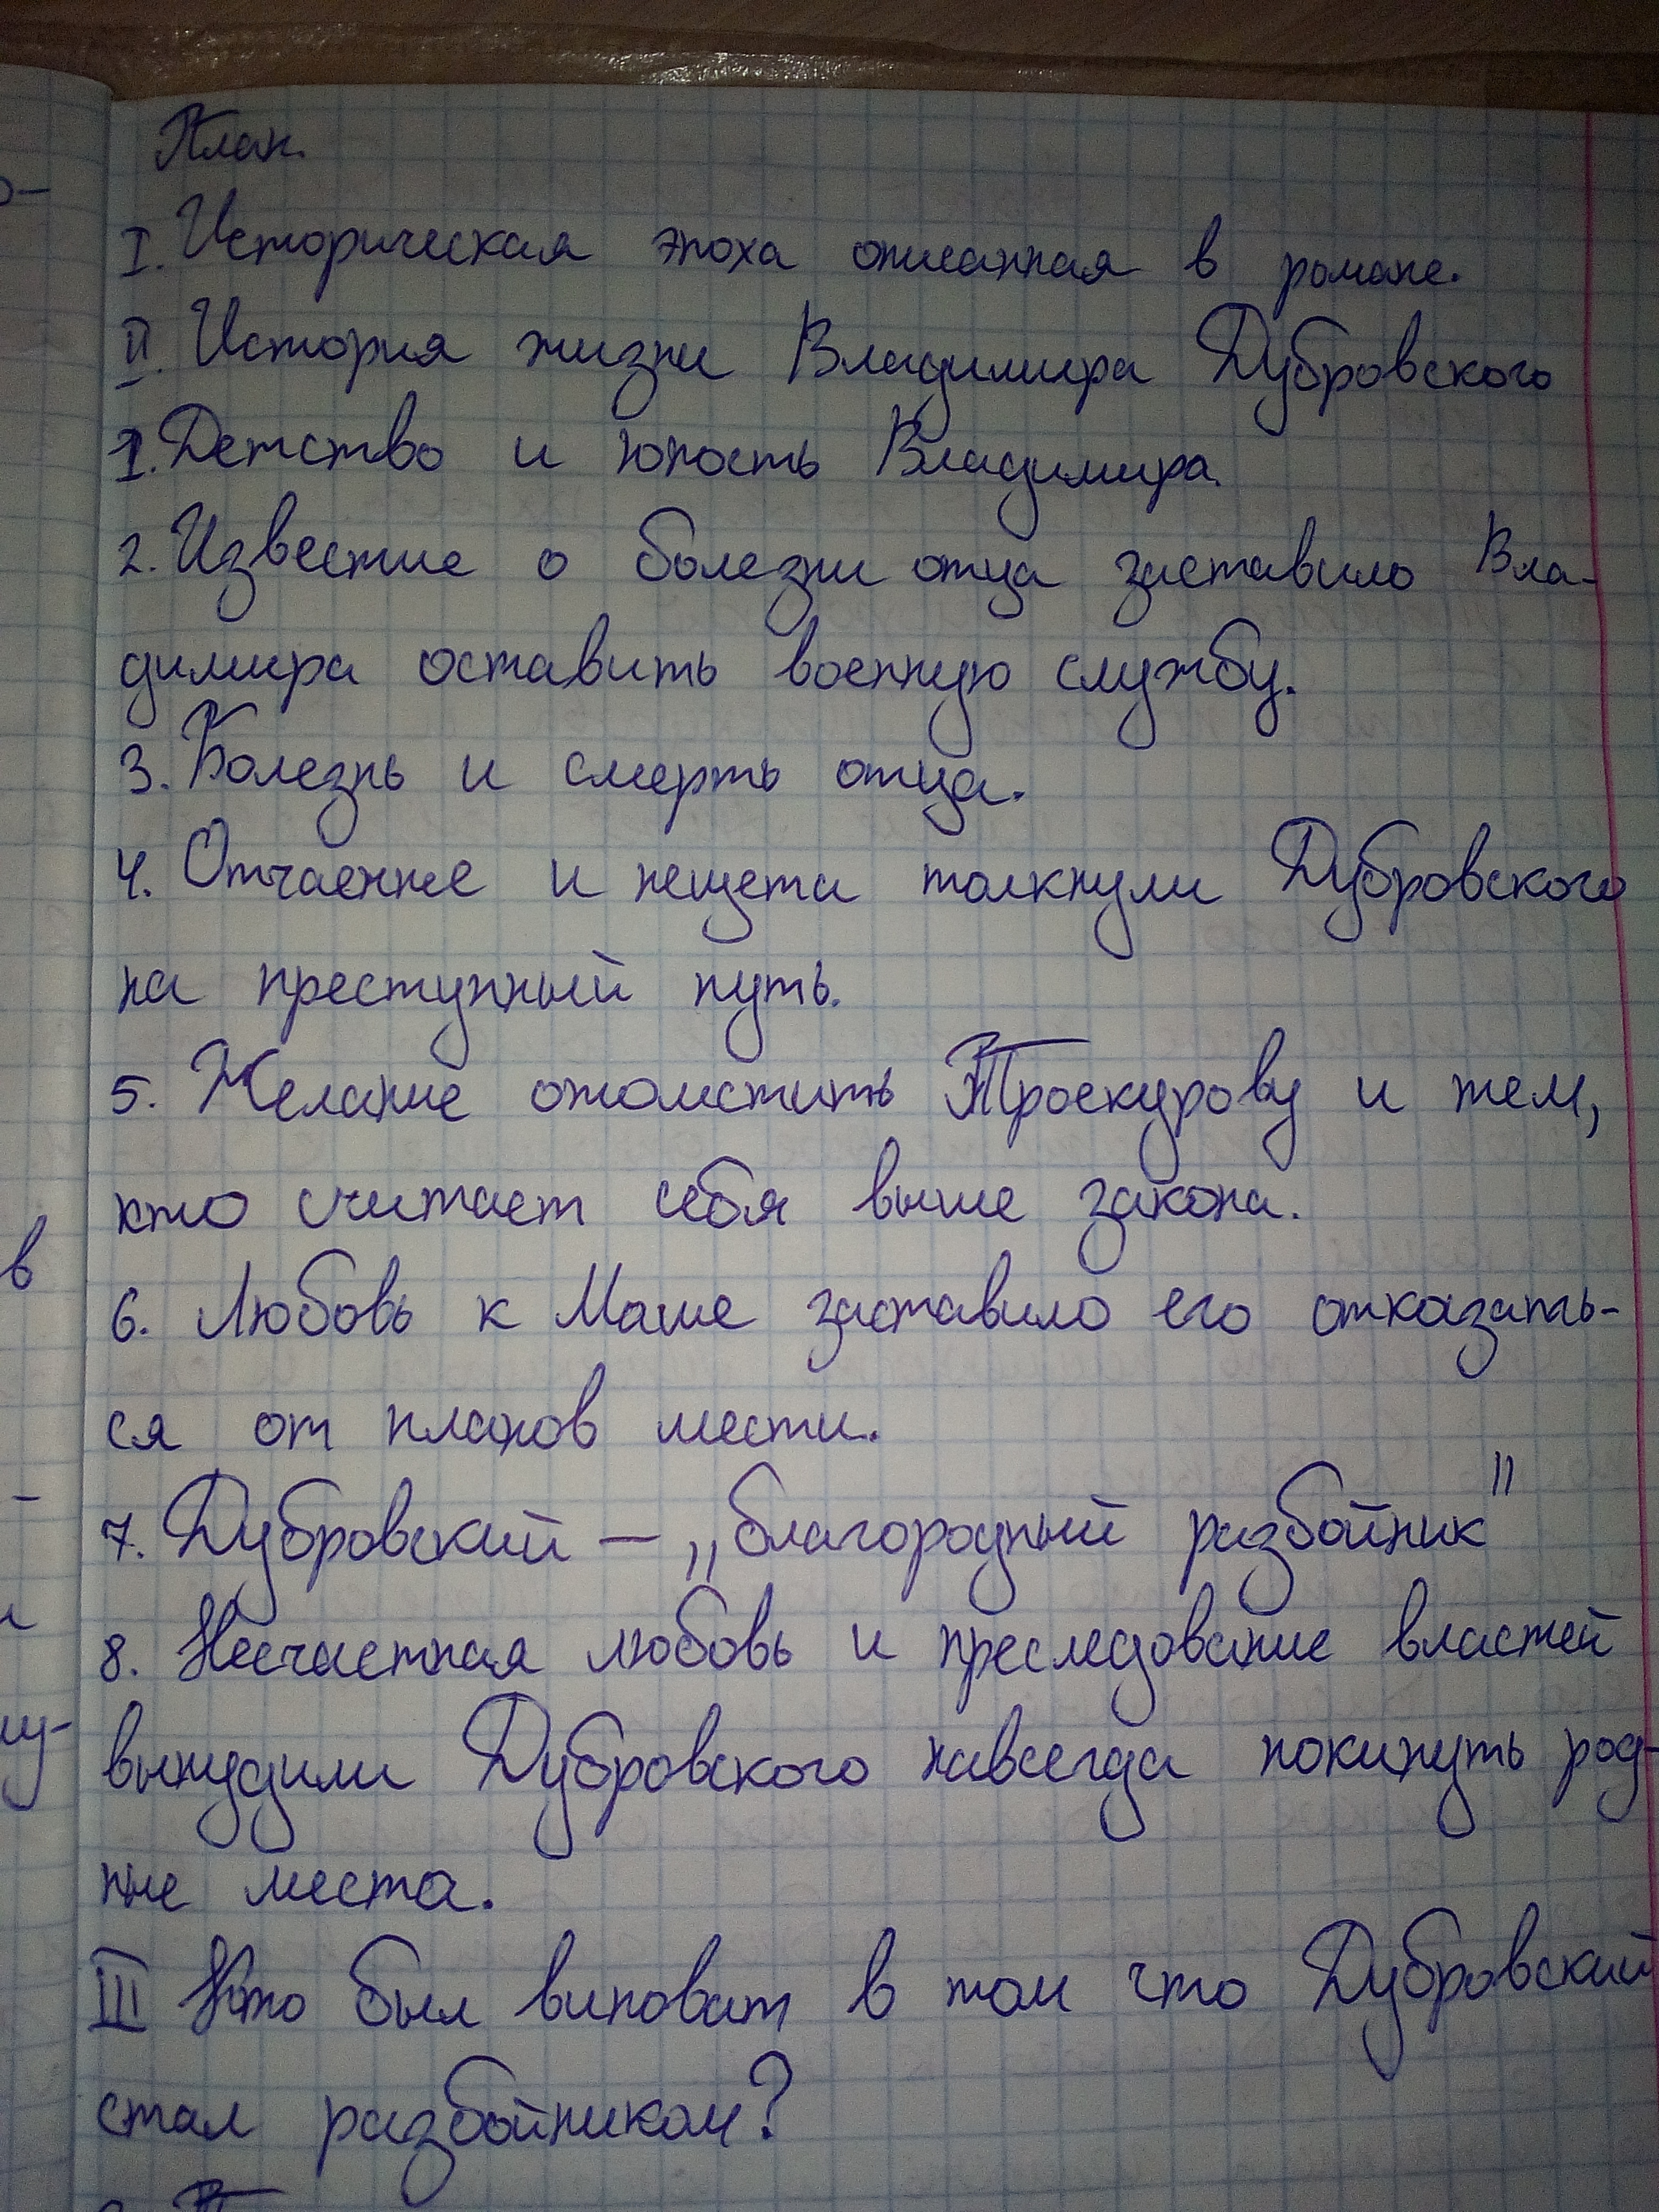 План.
I. Историческая эпоха описанная в романе.
II. История жизни Владимира Дубровского
1. Детство и юность Владимира.
2. Известие о болезни отца заставило Вла-
димира оставить военную службу.
3. Болезнь и смерть отца.
4. Отчаение и нещета толкнули Дубровского
на преступный путь.
5. Желание отомстить Троекурову и тем,
кто считает себя выше закона.
6. Любовь к Маше заставило его отказать-
ся от планов мести.
7. Дубровский – „благородный разбойник"
8. Несчастная любовь и преследование властей
вынудили Дубровского навсегда покинуть род-
ные места.
III Кто был виноват в том что Дубровский
стал разбойником?